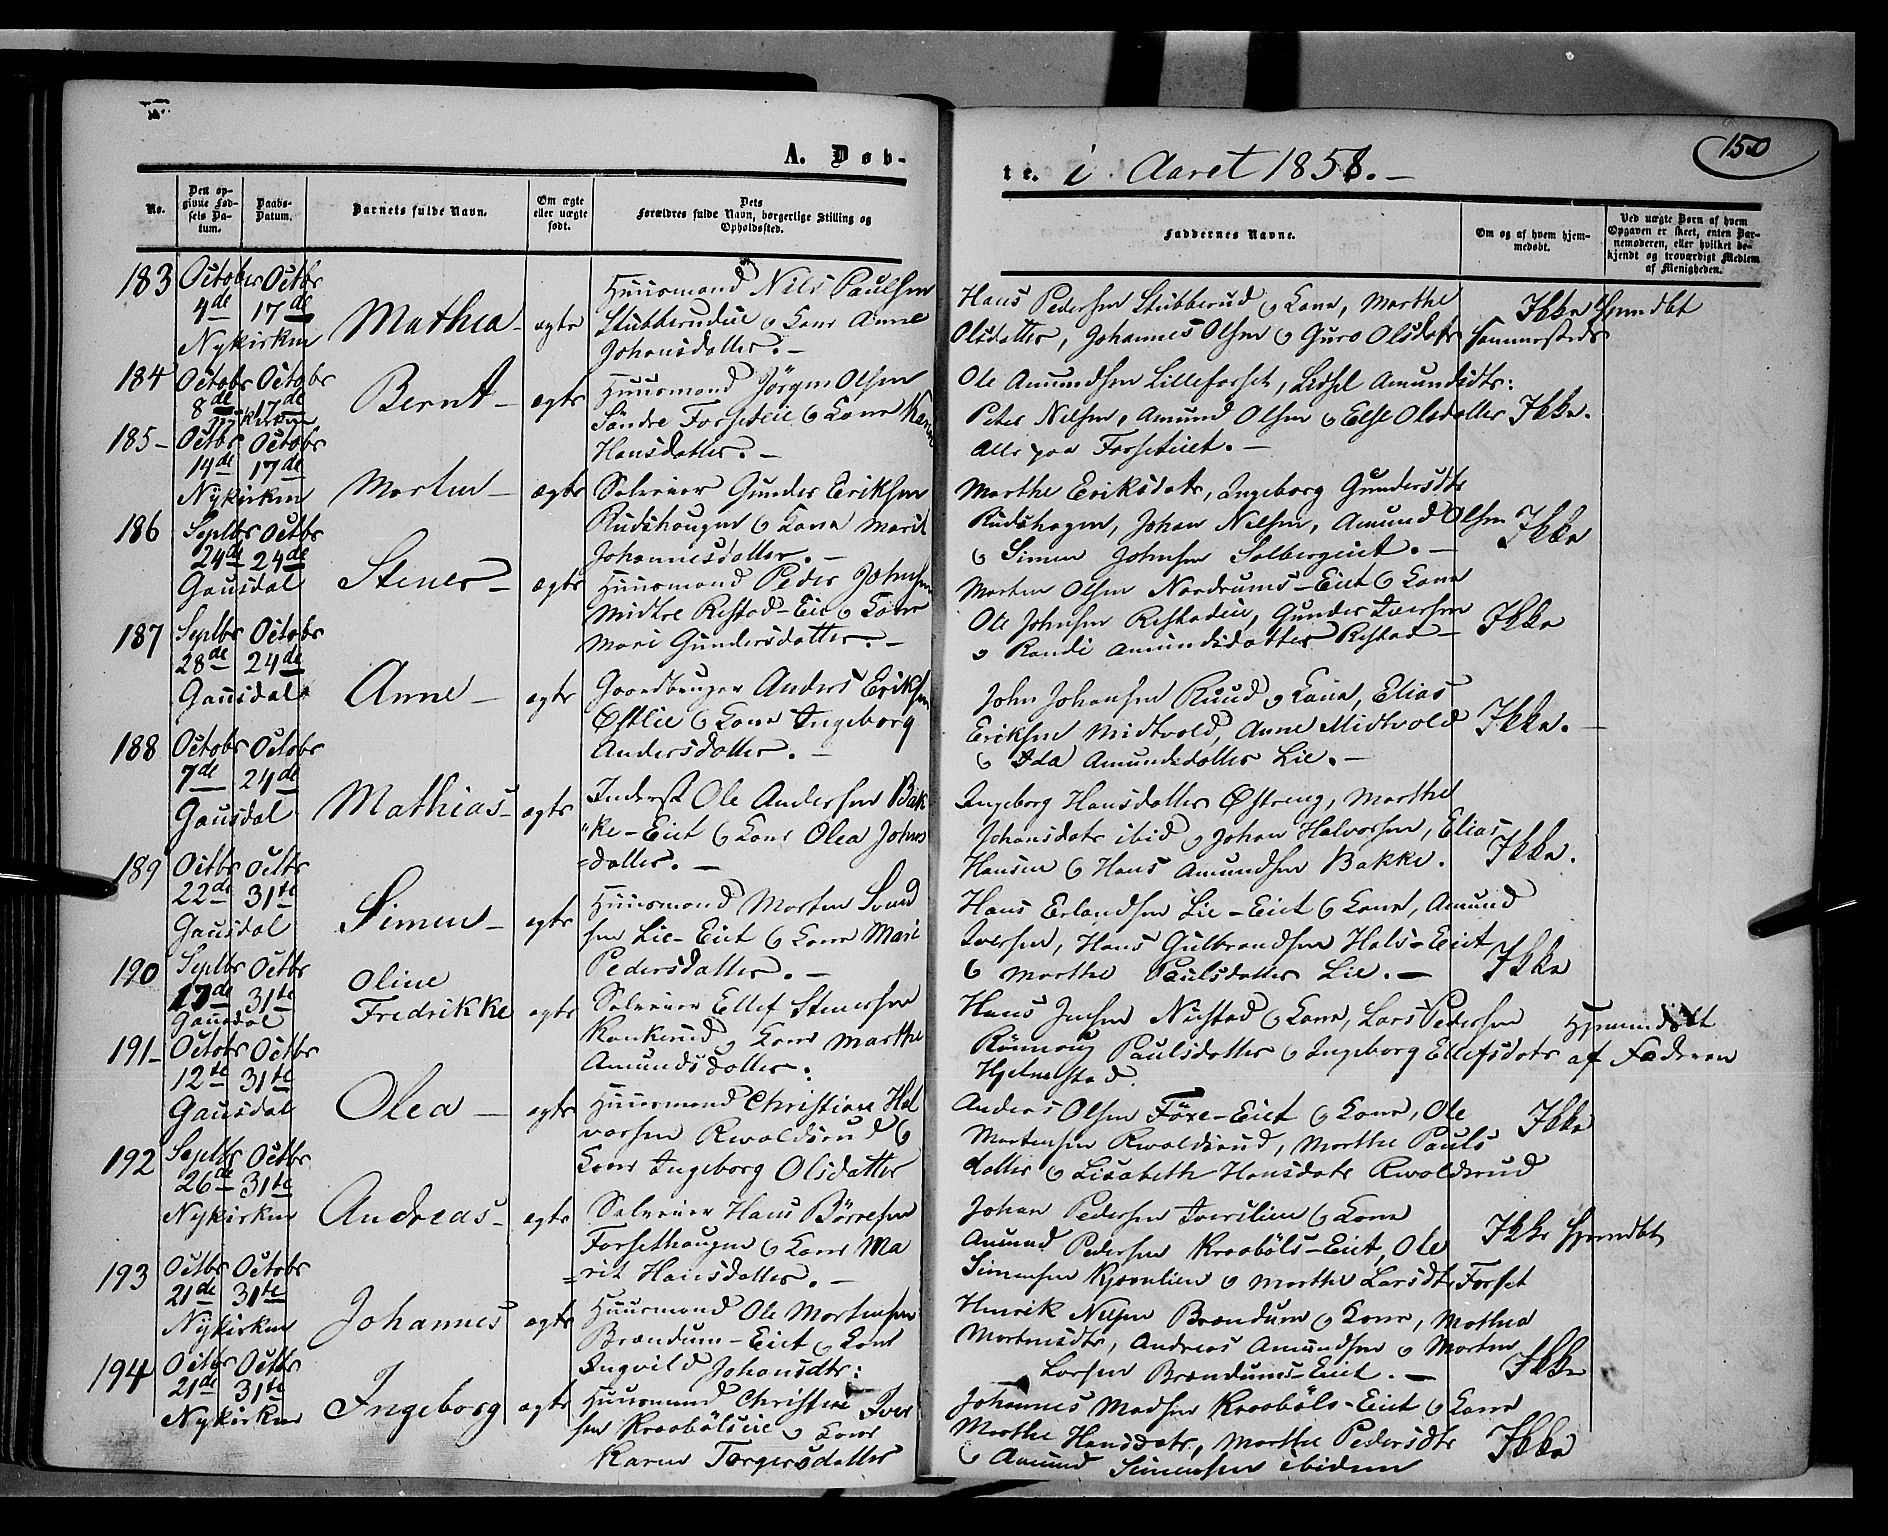 A. Døb-
te. i Aaret 1858.-
150
No.
Den opgivne Fødsels Datum.
Daabs-Datum.
Barnets fulde Navn.
Om ægte eller uægte født.
Dets Forældres fulde Navn, borgerlige Stilling og Opholdssted.
Faddernes Navne.
Om og af hvem hjemmedøbt.
Ved uægte Børn af hvem Opgaven er skeet, enten Barnemoderen, eller hvilket bekjendt og troværdigt Medlem af Menigheden.
183 Octobr Octbr
4de 17de
Nykirken
Mathea - ægte
Huusmand Nils Paulsen
Stubberudeie & Kone Anne
Johansdatter. -
Hans Pedersen Stubberud & Kone, Marthe
Olsdatter, Johannes Olsen & Guro Olsdatr
Ikke hjemdbt
sammesteds
184 Octobr Octobr
8de 17de
Nykirken
Bernt - ægte
Huusmand Jörgen Olsen
Söndre Forseteie & Kone Karen
Hansdatter. -
Ole Amundsen Lilleforset, Lidsel Amundsdtr:
Peter Nilsen, Amund Olsen & Else Olsdatter
alle paa Forseteiet. -
Ikke.
185- Octbr Octobr
14de 17de
Nykirken
Morten - ægte
Selveier Gunder Eriksen
Rudshaugen & Kone Marit
Johannesdatter. -
Marthe Eriksdatr, Ingeborg Gundersdtr
Rudshagen, Johan Nilsen, Amund Olsen
& Simen Johnsen Solbergeiet. -
Ikke
186 Septbr Octbr
24de 24de
Gausdal
Stener - ægte
Huusmand Peder Johnsen
Midtre Restad-Eie & Kone
Mari Gundersdatter. -
Morten Olsen Nordrums-Eiet & Kone
Ole Johnsen Restadeie, Gunder Iversen
& Randi Amundsdatter Restad -
Ikke
187 Septbr Octobr
28de 24de
Gausdal
Anne - ægte
Gaardbruger Anders Eriksen
Østlie & Kone Ingeborg
Andersdatter. -
John Johansen Ruud & Kone, Elias
Eriksen Midtvold, Anne Midtvold
& Ida Amundsdatter Lie. -
Ikke. -
188 Octobr Octobr
7de 24de
Gausdal
Mathias - ægte
Inderst Ole Andersen Bak
"ke-Eiet & Kone Olea Johns
=datter. -
Ingeborg Hansdatter Østreng, Marthe
Johansdatr ibid & Johan Halvorsen, Elias
Hansen & Hans Amundsen Bakke.
Ikke.
189 Octbr Octbr
22de 31te
Gausdal
Simen - ægte
Huusmand Morten Svend
sen Lie-Eiet & Kone Mari
Pedersdatter. -
Hans Erlandsen Lie-Eiet & Kone, Amund
Iversen, Hans Gulbrandsen Hals-Eiet
& Marthe Paulsdatter Lie. -
Ikke
190 Septbr Octbr
17de 31te
Gausdal
Oline
Fredrikke ægte
Selveier Ellef Stenersen
Kankerud & Kone Marthe
Amundsdatter.
Hans Jensen Nustad & Kone, Lars Pedersen
Rönnoug Paulsdatter & Ingeborg Ellefsdatr
Hjelmstad.
Hjemmedøbt
af Faderen
191- Octobr Octbr
12te 31te
Gausdal
Olea - ægte
Huusmand Christian Hal
vorsen Rwaldsrud &
Kone Ingeborg Olsdatter
Anders Olsen Töxe-Eiet & Kone, Ole
Mortensen Rwaldsrud, Marthe Pauls
datter & Lisabeth Hansdatr Rwaldsrud
Ikke
192 Septbr Octbr
26de 31te
Nykirken
Andreas - ægte
Selveier Hans Börresen
Forsethaugen & Kone Ma
=rit Hansdatter. -
Johan Pedersen Iverslien & Kone
Amund Pedersen Kraaböls-Eiet, Ole
Simensen Kjærnlien & Marthe Larsdtr Forset
Ikke hjemdbt
193 Octbr Octobr
21de 31te
Nykirken
Johannes ægte
Huusmand Ole Mortensen
Brændum-Eiet & Kone
Ingvild Johansdtr:
Henrik Nilsen Brændum & Kone, Mathea
Mortensdtr, Andreas Amundsen & Morten
Larsen Brændums-Eiet. -
Ikke
194 Octbr Octbr
21de 31te
Nykirken
Ingeborg ægte
Huusmand Christian Iver
sen Kraabölseie & Kone
Karen Torgersdatter
Johannes Madsen Kraaböls-Eiet & Kone
Marthe Hansdatr, Marthe Pedersdtr
& Amund Simensen ibidem
Ikke